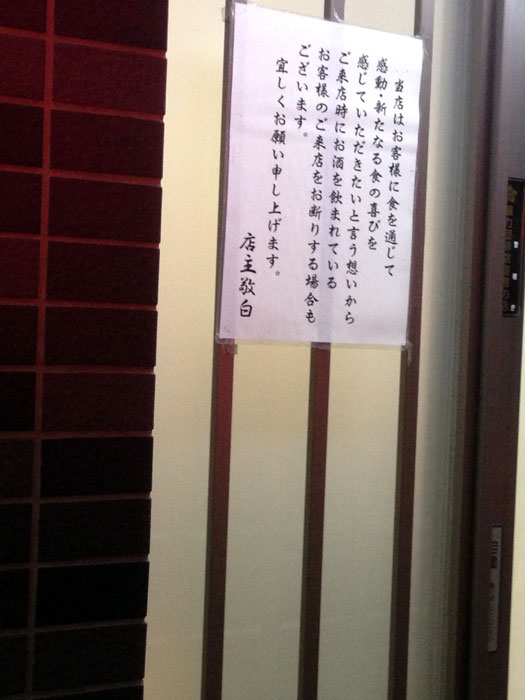 当店はお客様に食を通じて
感動・新たなる食の喜びを
感じていただきたいと言う想いから
ご来店時にお酒を飲まれている
お客様のご来店をお断りする場合も
ございます。
宜しくお願い申し上げます。
店主敬白